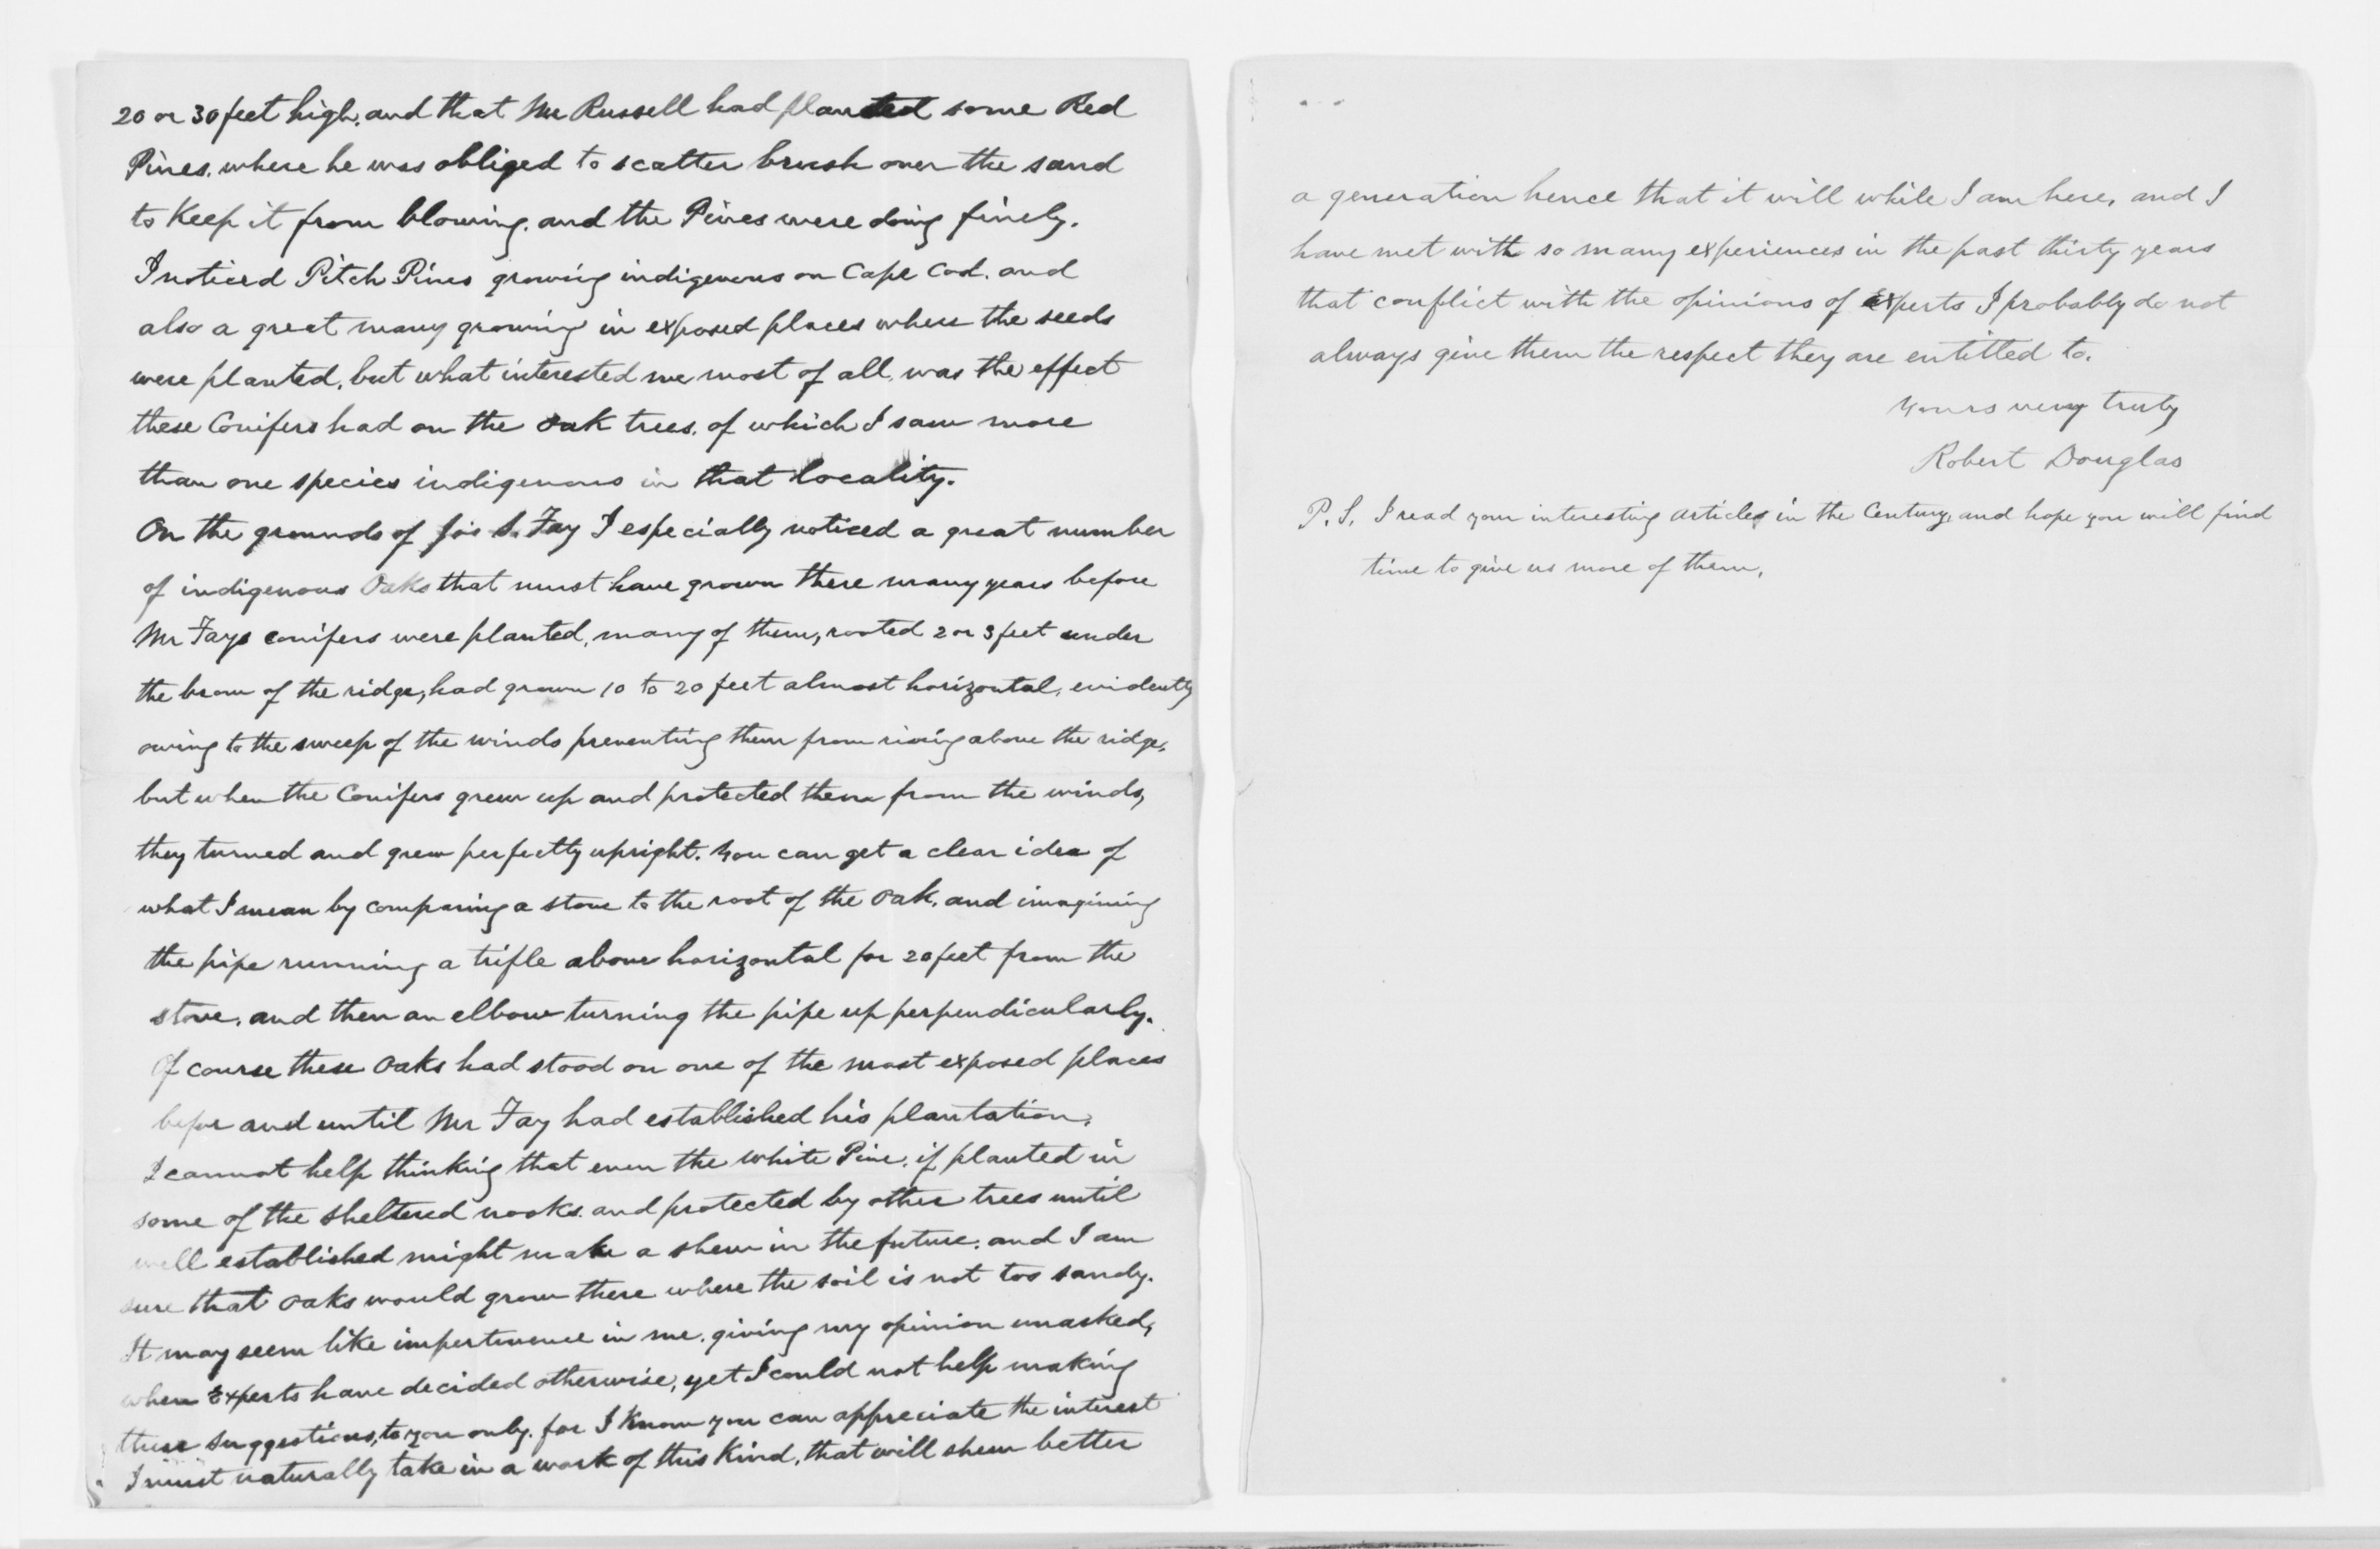 20 or 30 feet high, and that Mr Russell had planted some Red
Pines, where he was obliged to scatter brush over the sand
to Keep it from blowing, and the Pines were doing finely.
I noticed Pitch Pines growing indigenous on Cape Cod, and
also a great many growing in exposed places where the seeds
were planted, but what interested me most of all, was the effect
these Conifers had on the Oak trees, of which I saw more
than one species indigenous in that locality.
On the grounds of Jos S. Fay I especially noticed a great number
of indigenous Oaks that must have grown there many years before
Mr Fays conifers were planted, many of them, rooted 2 or 3 feet under
the brow of the ridge, had grown 10 to 20 feet almost horizontal, evidently
owing to the sweep of the winds preventing them from rising above the ridge,
but when the Conifers grew up and protected them from the winds,
they turned and grew perfectly upright. You can get a clear idea of
what I mean by comparing a stove to the root of the Oak, and imagining
the pipe running a trifle above horizontal for 20 feet from the
stove, and then an elbow turning the pipe up perpendicularly.
Of course these Oaks had stood on one of the most exposed places
before and until Mr Fay had established his plantation.
I cannot help thinking that even the White Pine, if planted in
some of the sheltered nooks and protected by other trees until
well established might make a shew in the future, and I am
sure that Oaks would grow there where the soil is not too sandy.
It may seem like impertinence in me, giving my opinion unasked,
when Experts have decided otherwise, yet I could not help making
these suggestions, to you only, for I Know you can appreciate the interest
I must naturally take in a work of this Kind, that will shew better
a generation hence that it will while I am here, and I
have met with so many experiences in the past thirty years
that conflict with the opinions of Experts I probably do not
always give them the respect they are entitled to.
Yours very truly
Robert Douglas
P.S. I read your interesting articles in the Century, and hope you will find
time to give us more of them.